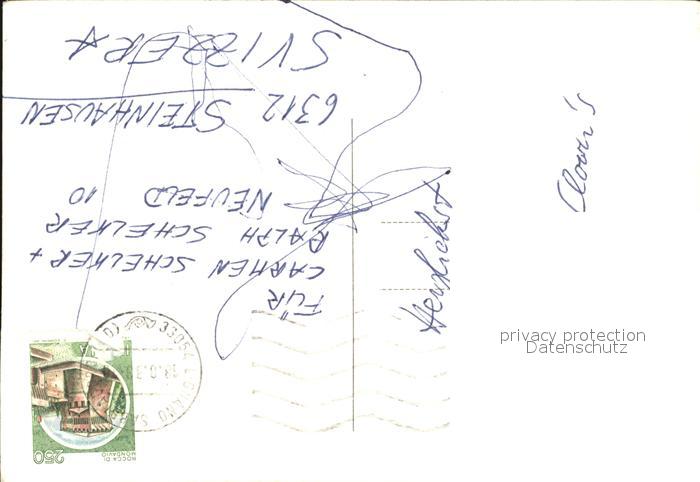 FÜR
CARMEN SCHELKER +
RALPH SCHELKER
NEUFELD 10
6312 STEINHAUSEN
SVIZZERA
Herzlichst
Clown's
privacy protection
Datenschutz
33054 LIGNANO
250
ROCCA DI
MONDAVIO